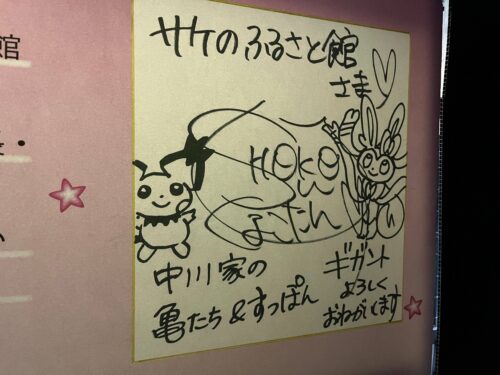 館
サケのふるさと館
さま
中川家の
亀たち&すっぽん
ギガント
よろしく
おねがいします